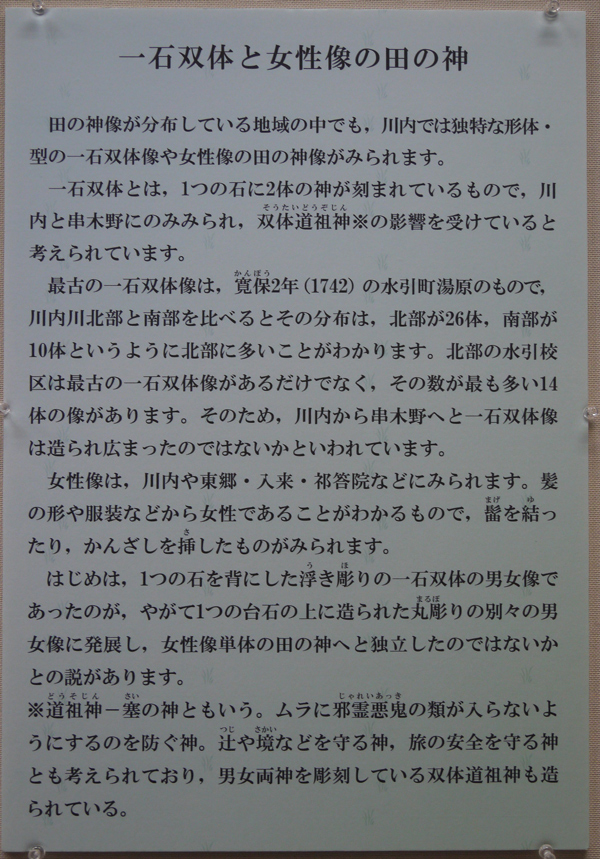 一石双体と女性像の田の神
田の神像が分布している地域の中でも，川内では独特な形体・
型の一石双体像や女性像の田の神像がみられます。
一石双体とは，1つの石に2体の神が刻まれているもので，川
内と串木野にのみみられ，双体道祖神※の影響を受けていると
そうたいどうそじん
考えられています。
最古の一石双体像は，寛保2年（1742）の水引町湯原のもので，
かんぽう
川内川北部と南部を比べるとその分布は，北部が26体，南部が
10体というように北部に多いことがわかります。北部の水引校
区は最古の一石双体像があるだけでなく，その数が最も多い14
体の像があります。そのため，川内から串木野へと一石双体像
は造られ広まったのではないかといわれています。
女性像は，川内や東郷・入来・祁答院などにみられます。髪
の形や服装などから女性であることがわかるもので，髷を結っ
まげ ゆ
たり，かんざしを挿したものがみられます。
さ
はじめは，1つの石を背にした浮き彫りの一石双体の男女像で
う ほ
あったのが，やがて1つの台石の上に造られた丸彫りの別々の男
まるぼ
女像に発展し，女性像単体の田の神へと独立したのではないか
との説があります。
※道祖神－塞の神ともいう。ムラに邪霊悪鬼の類が入らないよ
どうそじん さい じゃれいあっき
うにするのを防ぐ神。辻や境などを守る神，旅の安全を守る神
つじ さかい
とも考えられており，男女両神を彫刻している双体道祖神も造
られている。